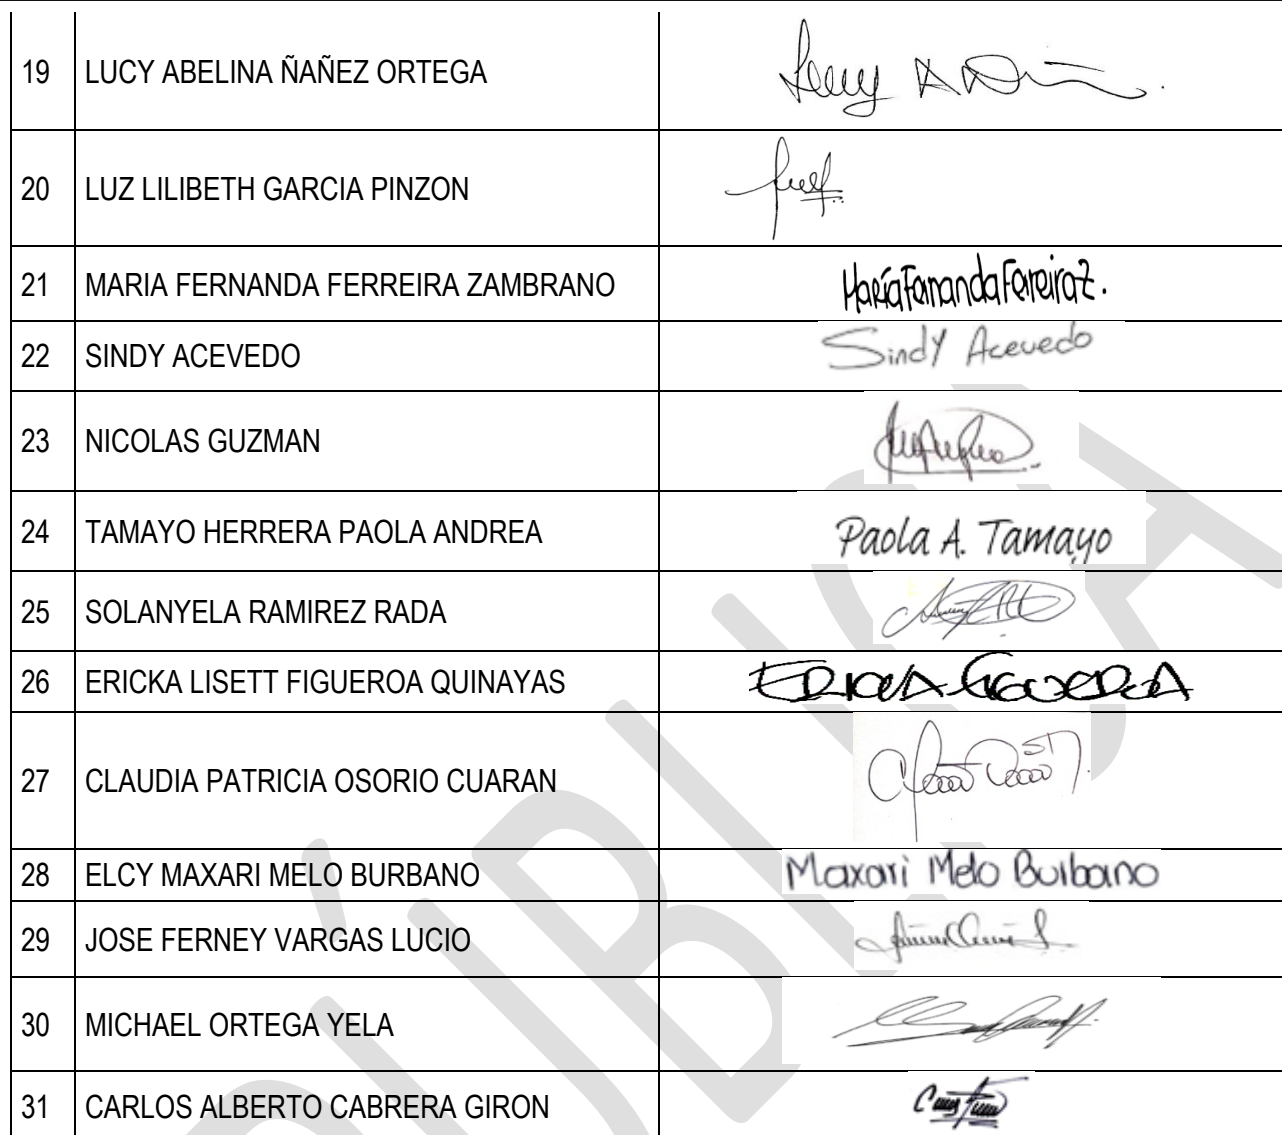 19 LUCY ABELINA ÑAÑEZ ORTEGA
20 LUZ LILIBETH GARCIA PINZON
21 MARIA FERNANDA FERREIRA ZAMBRANO MaríaFernandaFerreiraZ.
22 SINDY ACEVEDO Sindy Acevedo
23 NICOLAS GUZMAN
24 TAMAYO HERRERA PAOLA ANDREA Paola A. Tamayo
25 SOLANYELA RAMIREZ RADA
26 ERICKA LISETT FIGUEROA QUINAYAS
27 CLAUDIA PATRICIA OSORIO CUARAN
28 ELCY MAXARI MELO BURBANO Maxari Melo Burbano
29 JOSE FERNEY VARGAS LUCIO
30 MICHAEL ORTEGA YELA
31 CARLOS ALBERTO CABRERA GIRON